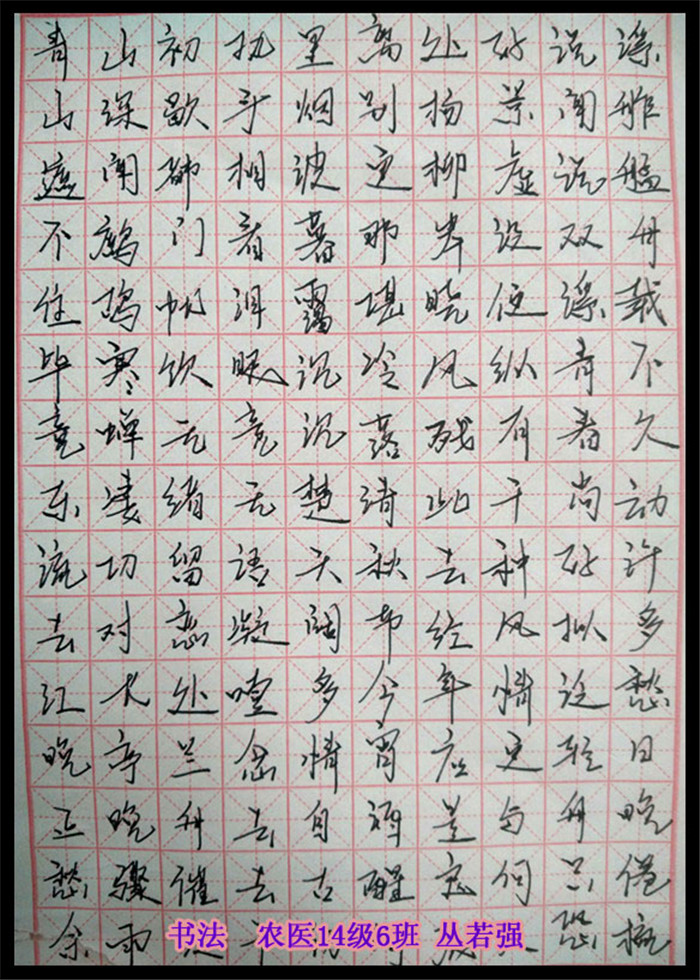 青山遮不住毕竟东流去江晚正愁余
山深闻鹧鸪寒蝉凄切对长亭晚骤雨
初歇都门帐饮无绪留恋处兰舟催
执手相看泪眼竟无语凝噎念去去千
里烟波暮霭沉沉楚天阔多情自古
离别更那堪冷落清秋节今宵酒醒
处扬柳岸晓风残此去经年应是
好景虚设便纵有千种风情更与何
说闻说双溪青春尚好拟泛轻舟只恐
溪舴艋舟载不久动许多愁日晚倦梳
书法 农医14级6班 丛若强